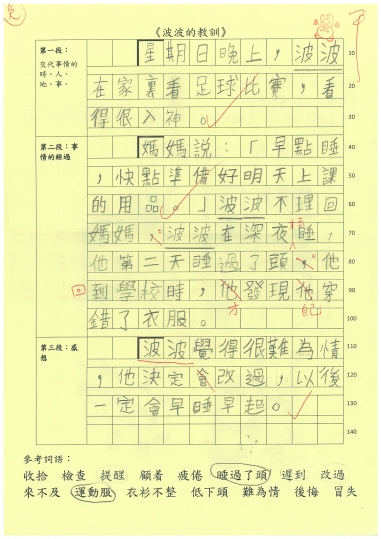 《波波的教訓》
第一段：
交代事情的
時、人、
地、事。
星期日晚上，波波
10
在家裏看足球比賽，看
20
得很入神。
30
第二段：事
情的經過
媽媽說：「早點睡
40
，快點準備好明天上課
50
的用品。」波波不理回
60
媽媽，波波在深夜睡，
70
他第二天睡過了頭，他
80
回
到學校時，他發現他穿
90
方
自己
錯了衣服。
100
第三段：感
想
波波覺得很難為情
110
，他決定會改過，以後
120
一定會早睡早起。
130
140
參考詞語：
收拾 檢查 提醒 顧着 疲倦 睡過了頭 遲到 改過
來不及 運動服 衣衫不整 低下頭 難為情 後悔 冒失